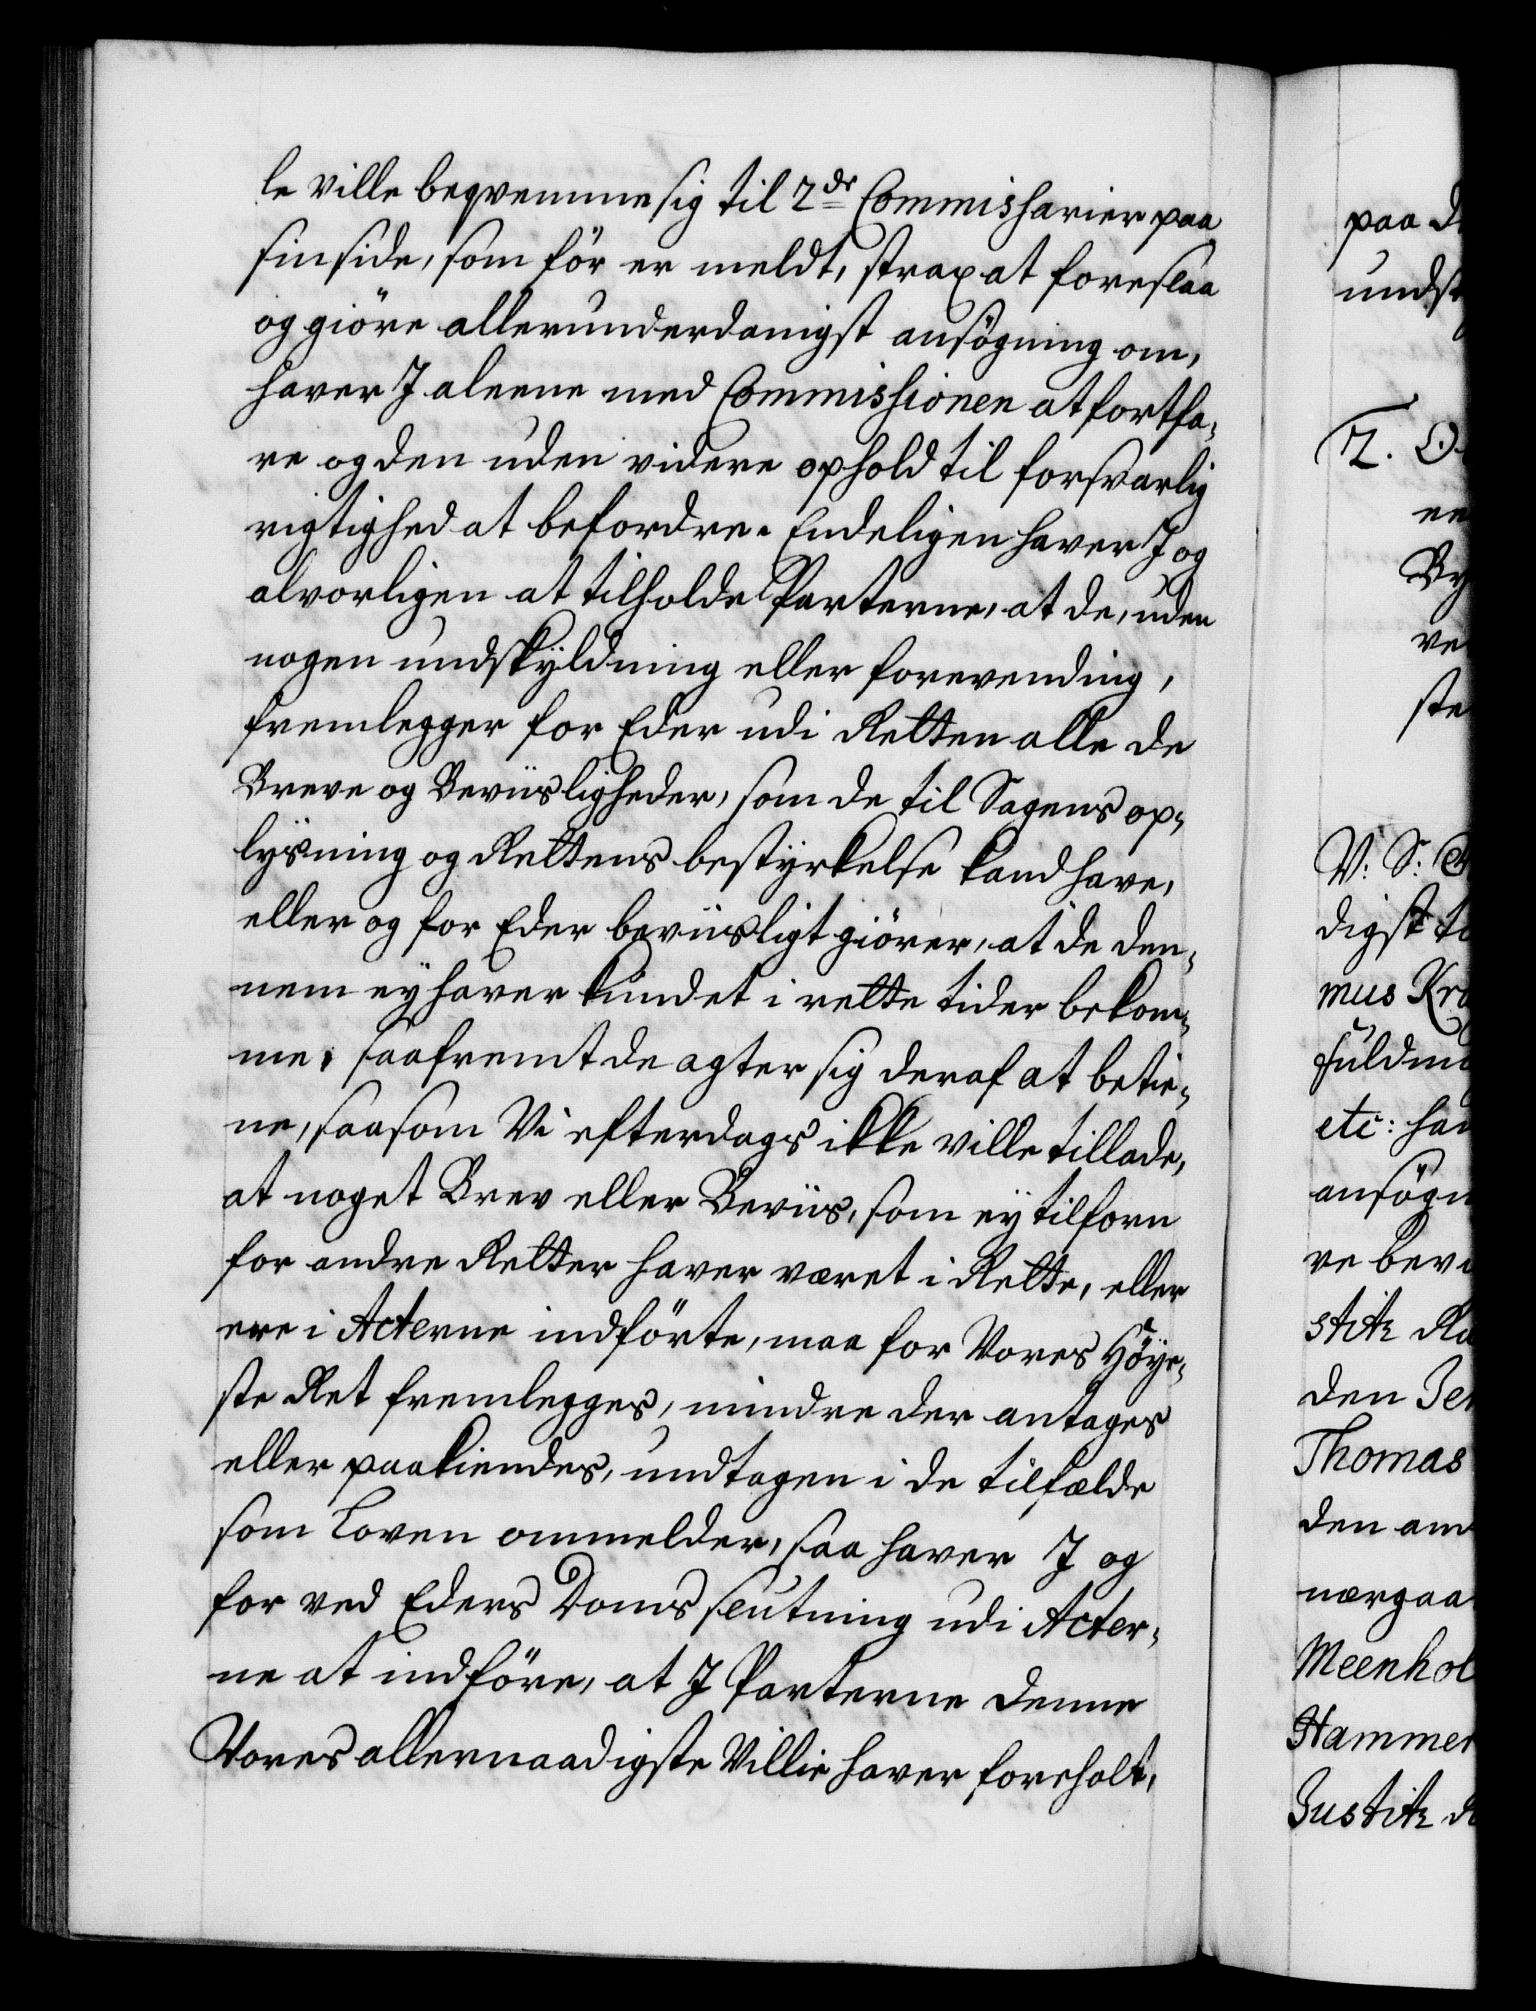 le ville beqvemme sig til 2de Commissarier paa
sin side, som för er meldt, strax at foreslaa
og giöre allerunderdanigst ansögning om,
haver I aleene med Commissionen at fortfa-
re og den uden videre ophold til forsvarlig
rigtighed at befordre. Endeligen haver I og
alvorligen at tilholde Parterne, at de, uden
nogen undskyldning eller forevending,
fremlegger for Eder udi Retten alle de
Breve og Beviisligheder, som de til Sagens op-
lysning og Rettens bestyrkelse kand have,
eller og for Eder beviisligt giörer, at de den-
nem ey haver kundet i rette tider bekom-
me, saafremt de agter sig deraf at betie-
ne, saasom Vi efterdags ikke ville tillade,
at noget Brev eller Beviis, som ey tilforn
for andre Retter haver været i Rette, eller
ere i Acterne indförte, maa for Vores Höye-
ste Ret fremlegges, mindre der antages
eller paakiendes, undtagen i de tilfælde
som Loven ommelder, saa haver I og
for ved Eders Doms slutning udi Acter-
ne at indföre, at I Parterne denne
Vores allernaadigste Villie haver foreholt,
paa d
undst
7. O
en
By
ve
ste
V: S: G
digst ti
mus Kra
fuldmæ
etc: har
ansögn
ve bevi
stitz Ra
den Jen
Thomas
den am
nærgaa
Meenhol
Hammer
Justitz R